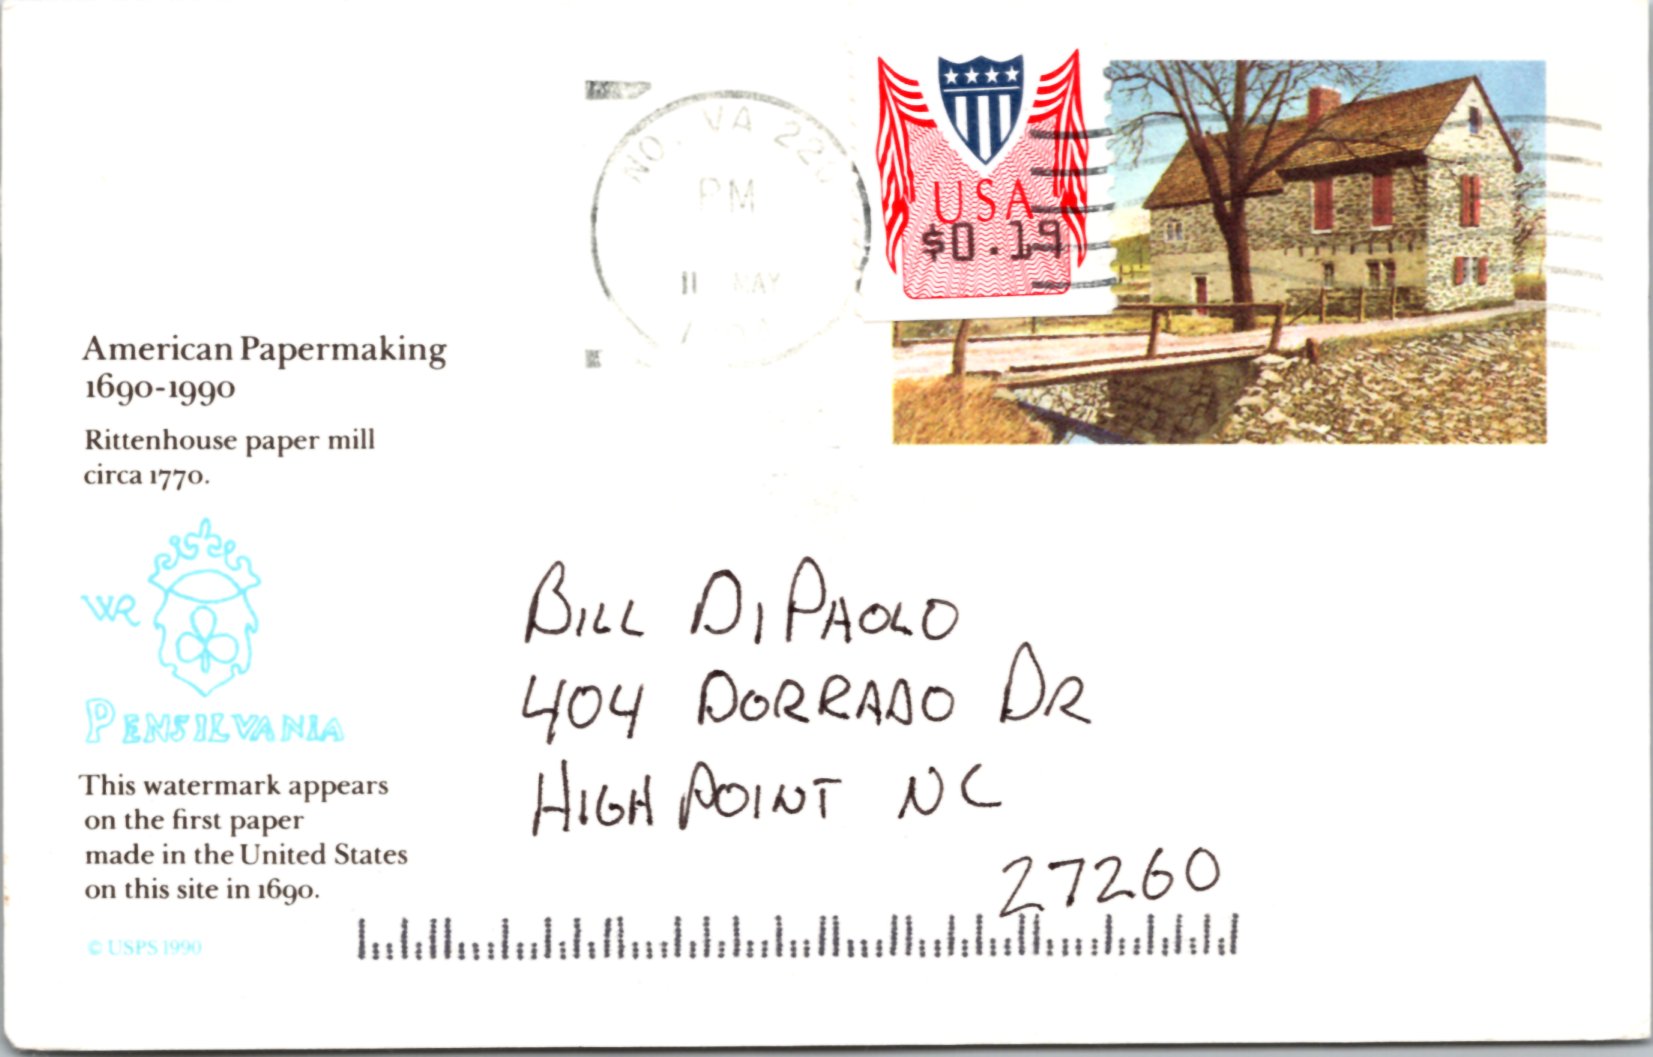 NO. VA 220
PM
11 MAY
USA
$0.19
American Papermaking
1690-1990
Rittenhouse paper mill
circa 1770.
WR
PENSILVANIA
This watermark appears
on the first paper
made in the United States
on this site in 1690.
© USPS 1990
BILL DIPAOLO
404 DORRADO DR
HIGH POINT NC
27260